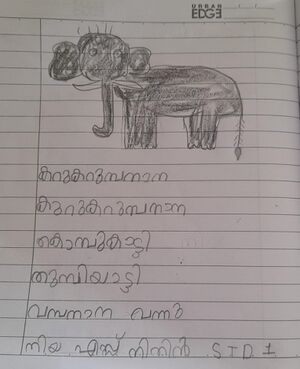 URBAN EDGE
കറുകറുമ്പനാന
കുറുകറുമ്പനാന
കൊമ്പുകാട്ടി
തുമ്പിയാട്ടി
വമ്പനാന വന്നു
നിയ എസ്സ് നിതിൻ STD 1